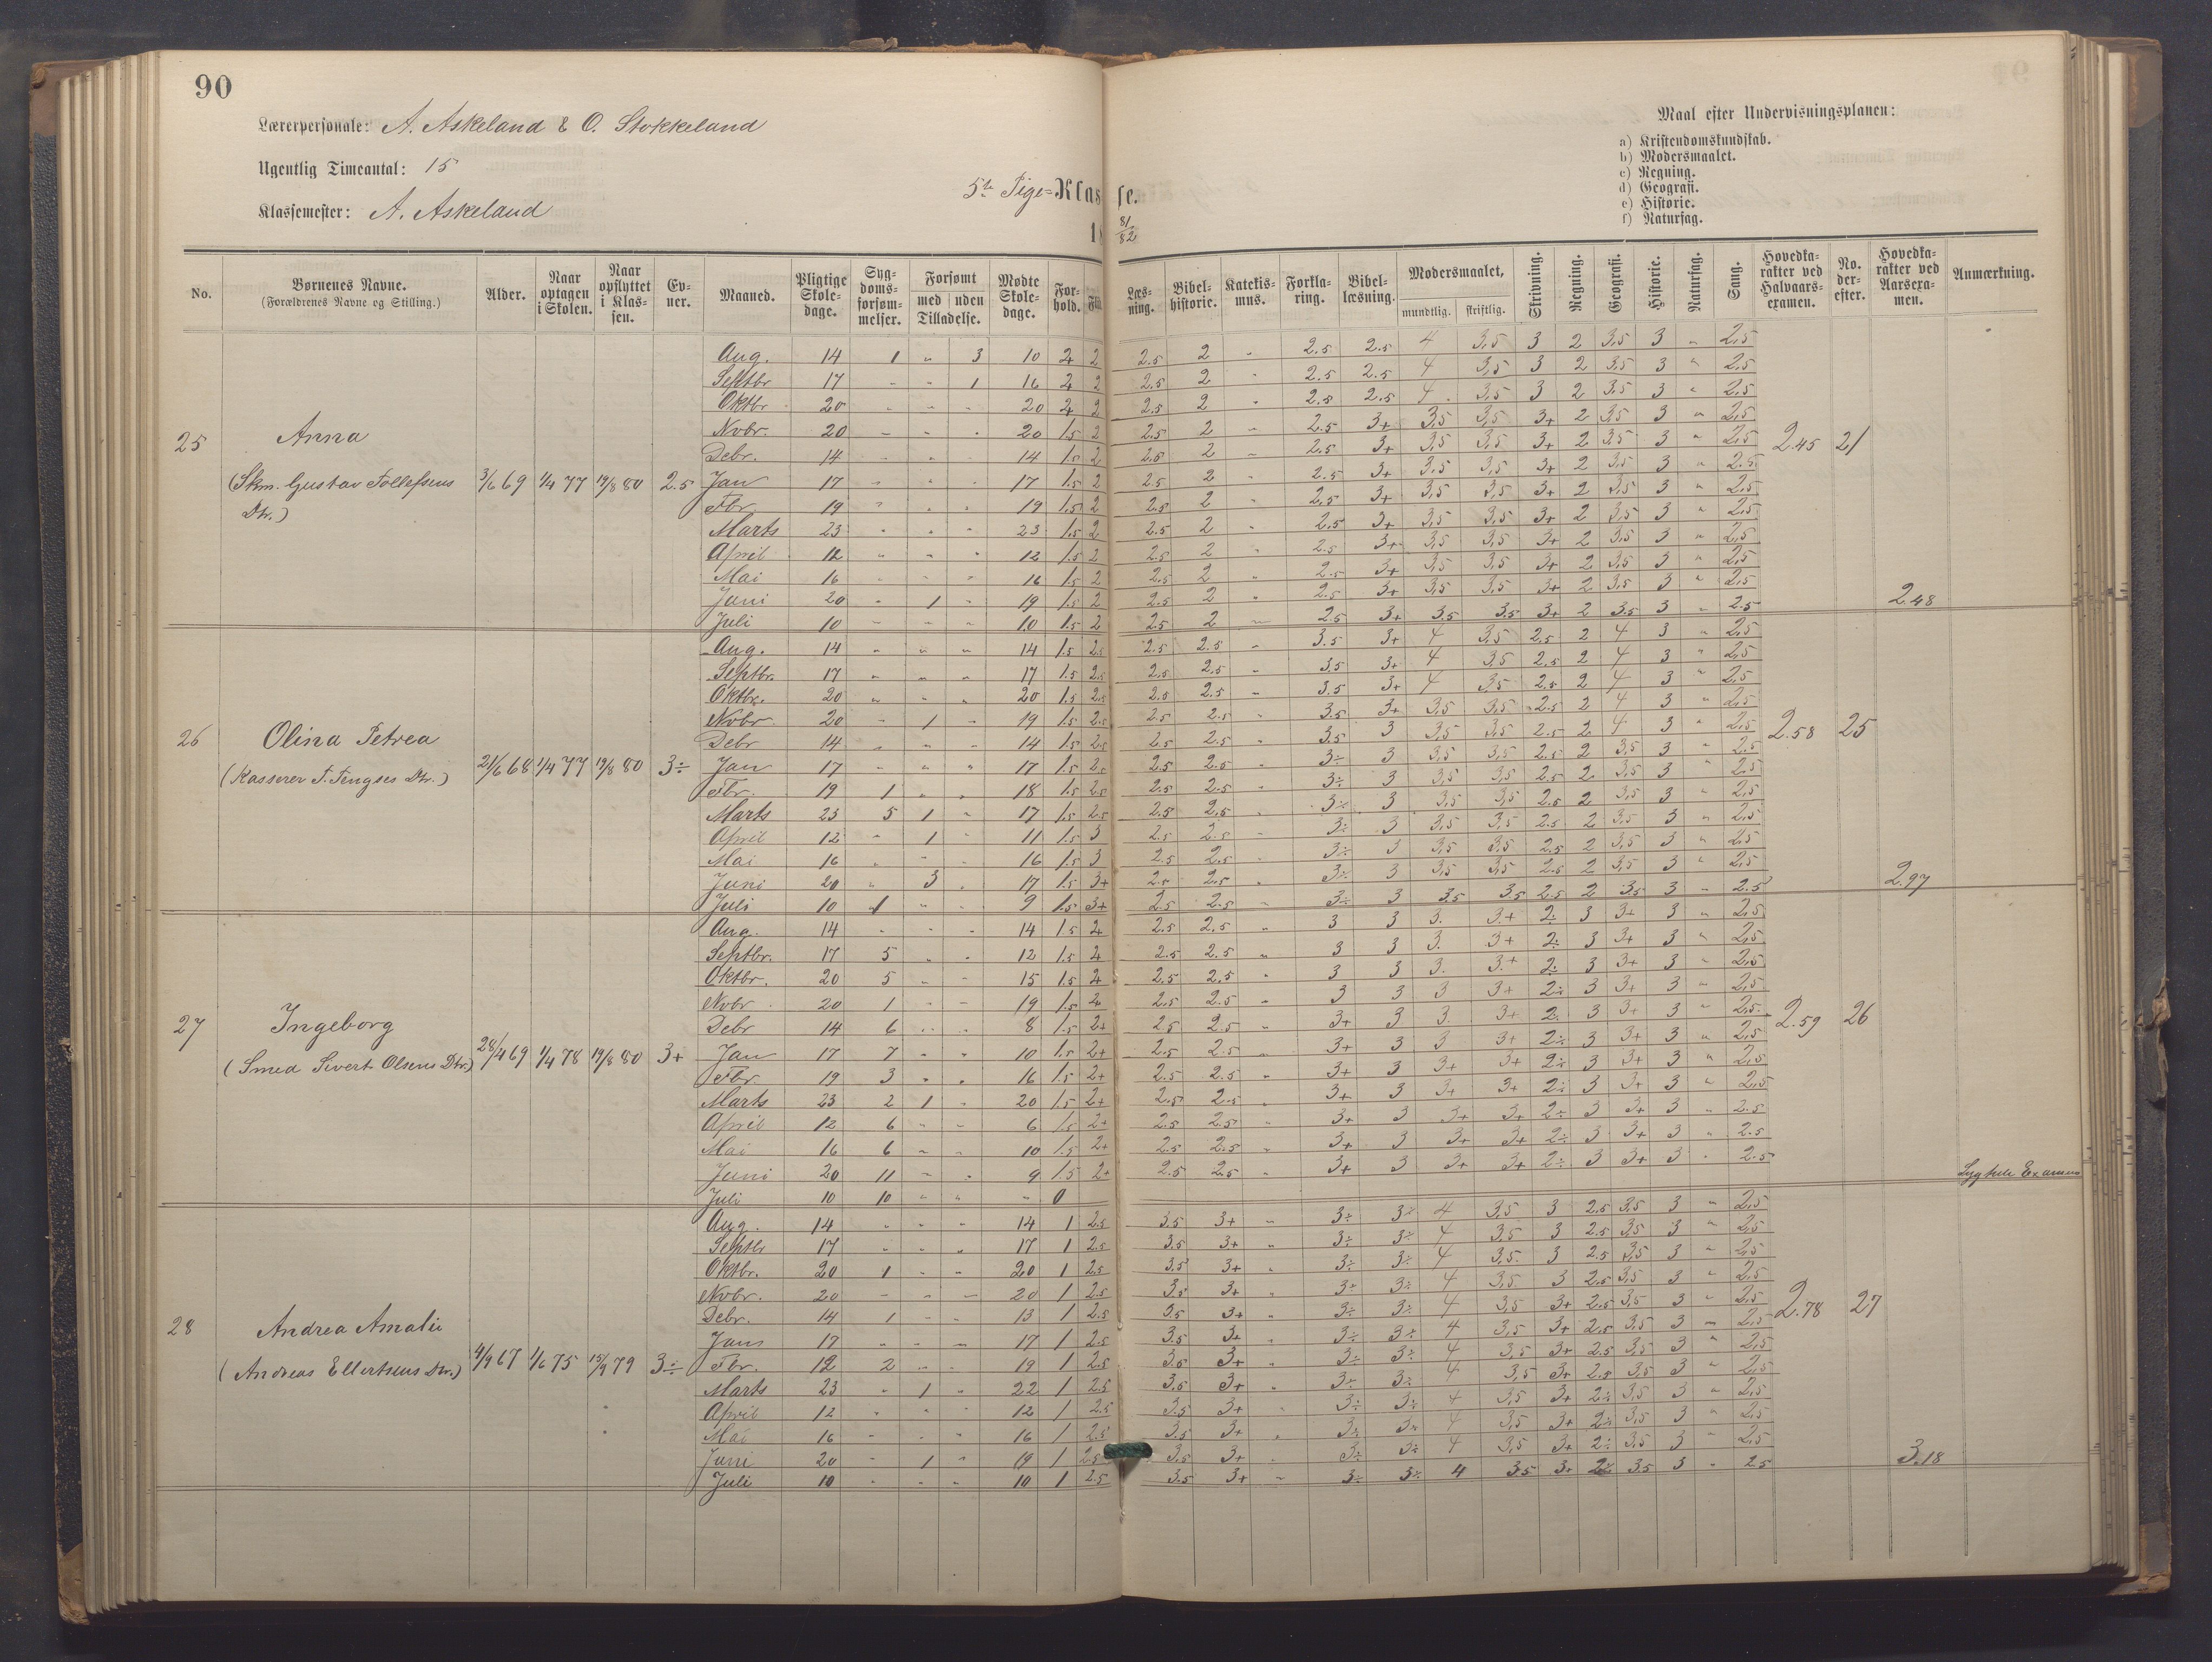 90
Lærerpersonale: A. Askeland & O. Stokkeland
Ugentlig Timeantal: 15
Klassemester: A. Askeland
5te Pige=Klasse.
18 81/82
Maal efter Undervisningsplanen:
a) Kristendomskundskab.
b) Modersmaalet.
c) Regning.
d) Geografi.
e) Historie.
f) Naturfag.
No. Børnenes Navne. (Forældrenes Navne og Stilling.) Alder. Naar optagen i Skolen. Naar opflyttet i Klassen. Evner. Maaned. Pligtige Skoledage. Sygdomsforsømmelser. Forsømt med uden Tilladelse. Mødte Skoledage. Forhold. Læsning. Bibelhistorie. Katekismus. Forklaring. Bibellæsning. Modersmaalet, mundtlig. skriftlig. Skrivning. Regning. Geografi. Historie. Naturfag. Sang. Hovedkarakter ved Halvaarsexamen. No. derefter. Hovedkarakter ved Aarsexamen. Anmærkning.
25 Anna
(Skm. Gustav Tollefsens Dtr.) 3/6 69 1/4 77 19/8 80 2.5
Aug. 14 1 „ 3 10 2 2 2.5 2 „ 2.5 2.5 4 3,5 3 2 3,5 3 „ 2,5
Septbr 17 „ „ 1 16 2 2 2.5 2 „ 2.5 2.5 4 3,5 3 2 3,5 3 „ 2,5
Oktbr 20 „ „ „ 20 2 2 2.5 2 „ 2.5 2.5 4 3,5 3 2 3,5 3 „ 2,5
Nvbr. 20 „ „ „ 20 1.5 2 2.5 2 „ 2.5 3+ 3,5 3,5 3+ 2 3,5 3 „ 2,5
Debr. 14 „ „ „ 14 1.5 2 2.5 2 „ 2.5 3+ 3,5 3,5 3+ 2 3,5 3 „ 2,5 2.45 21
Jan 17 „ „ „ 17 1.5 2 2.5 2 „ 2.5 3+ 3,5 3,5 3+ 2 3,5 3 „ 2.5
Fbr. 19 „ „ „ 19 1.5 2 2.5 2 „ 2.5 3+ 3,5 3,5 3+ 2 3,5 3 „ 2,5
Marts 23 „ „ „ 23 1.5 2 2.5 2 „ 2.5 3+ 3,5 3,5 3+ 2 3,5 3 „ 2,5
April 12 „ „ „ 12 1.5 2 2.5 2 „ 2.5 3+ 3,5 3,5 3+ 2 3,5 3 „ 2,5
Mai 16 „ „ „ 16 1.5 2 2.5 2 „ 2.5 3+ 3,5 3,5 3+ 2 3,5 3 „ 2,5
Juni 20 „ 1 „ 19 1.5 2 2.5 2 „ 2.5 3+ 3,5 3,5 3+ 2 3,5 3 „ 2,5
Juli 10 „ „ „ 10 1.5 2 2.5 2 „ 2.5 3+ 3.5 3.5 3+ 2 3.5 3 „ 2.5 2.48
26 Olina Petrea
(Kasserer T. Tengses Dtr.) 21/6 68 1/4 77 19/8 80 3÷
Aug. 14 „ „ „ 14 1.5 2.5 2.5 2.5 „ 3.5 3+ 4 3,5 2.5 2 4 3 „ 2,5
Septbr. 17 „ „ „ 17 1.5 2.5 2.5 2.5 „ 3.5 3+ 4 3,5 2.5 2 4 3 „ 2,5
Oktbr. 20 „ „ „ 20 1.5 2.5 2.5 2.5 „ 3.5 3+ 4 3,5 2.5 2 4 3 „ 2,5
Nvbr 20 „ 1 „ 19 1.5 2.5 2.5 2.5 „ 3.5 3+ 3,5 3,5 2.5 2 4 3 „ 2,5
Debr 14 „ „ „ 14 1.5 2.5 2.5 2.5 „ 3.5 3 3,5 3,5 2.5 2 4 3 „ 2,5 2.58 25
Jan 17 „ „ „ 17 1.5 2.5 2.5 2.5 „ 3÷ 3 3,5 3,5 2.5 2 3,5 3 „ 2.5
Fbr. 19 1 „ „ 18 1.5 2.5 2.5 2.5 „ 3÷ 3 3,5 3,5 2.5 2 3,5 3 „ 2,5
Marts 23 5 1 „ 17 1.5 2.5 2.5 2.5 „ 3÷ 3 3,5 3,5 2.5 2 3,5 3 „ 2,5
April 12 „ 1 „ 11 1.5 3 2.5 2.5 „ 3÷ 3 3,5 3,5 2.5 2 3,5 3 „ 2,5
Mai 16 „ „ „ 16 1.5 3 2.5 2.5 „ 3÷ 3 3,5 3,5 2.5 2 3,5 3 „ 2,5
Juni 20 „ 3 „ 17 1.5 3+ 2.5 2.5 „ 3÷ 3 3,5 3,5 2.5 2 3,5 3 „ 2,5
Juli 10 1 „ „ 9 1.5 3+ 2.5 2.5 „ 3÷ 3 3.5 3.5 2.5 2 3.5 3 „ 2.5 2.97
27 Ingeborg
(Smed Sivert Olsens Dtr) 28/4 69 1/4 78 19/8 80 3+
Aug. 14 „ „ „ 14 1.5 2 2.5 2.5 „ 3 3 3. 3+ 2÷ 3 3+ 3 „ 2,5
Septbr. 17 5 „ „ 12 1.5 2 2.5 2.5 „ 3 3 3. 3+ 2÷ 3 3+ 3 „ 2,5
Oktbr. 20 5 „ „ 15 1.5 2 2.5 2.5 „ 3 3 3. 3+ 2÷ 3 3+ 3 „ 2,5
Nvbr 20 1 „ „ 19 1.5 2 2.5 2.5 „ 3 3 3 3+ 2÷ 3 3+ 3 „ 2,5
Debr 14 6 „ „ 8 1.5 2+ 2.5 2.5 „ 3+ 3 3. 3+ 2÷ 3 3+ 3 „ 2,5 2.59 26
Jan 17 7 „ „ 10 1.5 2+ 2.5 2.5 „ 3+ 3 3 3+ 2÷ 3 3+ 3 „ 2,5
Fbr 19 3 „ „ 16 1.5 2+ 2.5 2.5 „ 3+ 3 3+ 3+ 2÷ 3 3+ 3 „ 2,5
Marts 23 2 1 „ 20 1.5 2+ 2.5 2.5 „ 3+ 3 3+ 3+ 2÷ 3 3+ 3 „ 2,5
April 12 6 „ „ 6 1.5 2+ 2.5 2.5 „ 3+ 3 3+ 3+ 2÷ 3 3+ 3 „ 2.5
Mai 16 6 „ „ 10 1.5 2+ 2.5 2.5 „ 3+ 3 3+ 3+ 2÷ 3 3+ 3 „ 2.5
Juni 20 11 „ „ 9 1.5 2+ 2.5 2.5 „ 3+ 3 3+ 3+ 2÷ 3 3+ 3 „ 2.5
Juli 10 10 „ „ „ 0 Syg hele Examen
28 Andrea Amalie
(Andreas Ellertsens Dtr.) 4/9 67 1/6 75 15/9 79 3÷
Aug. 14 „ „ „ 14 1 2.5 3.5 3+ „ 3÷ 3÷ 4 3,5 3 2.5 3,5 3 „ 2,5
Septbr 17 „ „ „ 17 1 2.5 3.5 3+ „ 3÷ 3÷ 4 3,5 3 2.5 3,5 3 „ 2,5
Oktbr. 20 1 „ „ 20 1 2.5 3.5 3+ „ 3÷ 3÷ 4 3,5 3 2.5 3,5 3 „ 2,5
Nvbr. 20 „ „ „ 20 1 2.5 3.5 3+ „ 3÷ 3÷ 4 3,5 3 2.5 3,5 3 „ 2,5
Debr. 14 1 „ „ 13 1 2.5 3.5 3+ „ 3÷ 3÷ 4 3,5 3+ 2.5 3,5 3 „ 2,5 2.78 27
Jan 17 „ „ „ 17 1 2.5 3.5 3+ „ 3÷ 3÷ 4 3,5 3+ 2.5 3,5 3 „ 2,5
Fbr. 12 2 „ „ 19 1 2.5 3.5 3+ „ 3÷ 3÷ 4 3,5 3+ 2.5 3,5 3 „ 2,5
Marts 23 „ 1 „ 22 1 2.5 3.5 3+ „ 3÷ 3÷ 4 3,5 3+ 2.5 3,5 3 „ 2,5
April 12 „ „ „ 12 1 2.5 3.5 3+ „ 3÷ 3÷ 4 3,5 3+ 2÷ 3,5 3 „ 2,5
Mai 16 „ „ „ 16 1 2.5 3.5 3+ „ 3÷ 3÷ 4 3,5 3+ 2÷ 3,5 3 „ 2,5
Juni 20 „ 1 „ 19 1 2.5 3.5 3+ „ 3÷ 3÷ 4 3,5 3+ 2÷ 3,5 3 „ 2,5
Juli 10 „ „ „ 10 1 2.5 3.5 3+ „ 3÷ 3÷ 4 3.5 3+ 2÷ 3.5 3 „ 2.5 3.18